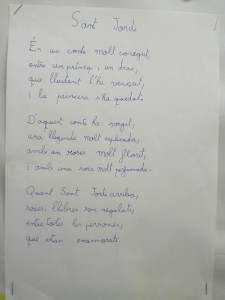 Sant Jordi
És un conte molt conegut,
entre un príncep i un drac,
que lluitant l'ha vençut,
i la princesa s'ha quedat.
D'aquest conte ha sorgit,
una llegenda molt esplendida,
amb un roser molt florit,
i amb una rosa molt perfumada.
Quant Sant Jordi arriba,
roses i llibres son regalats,
entre totes les persones,
que estan enamorats.